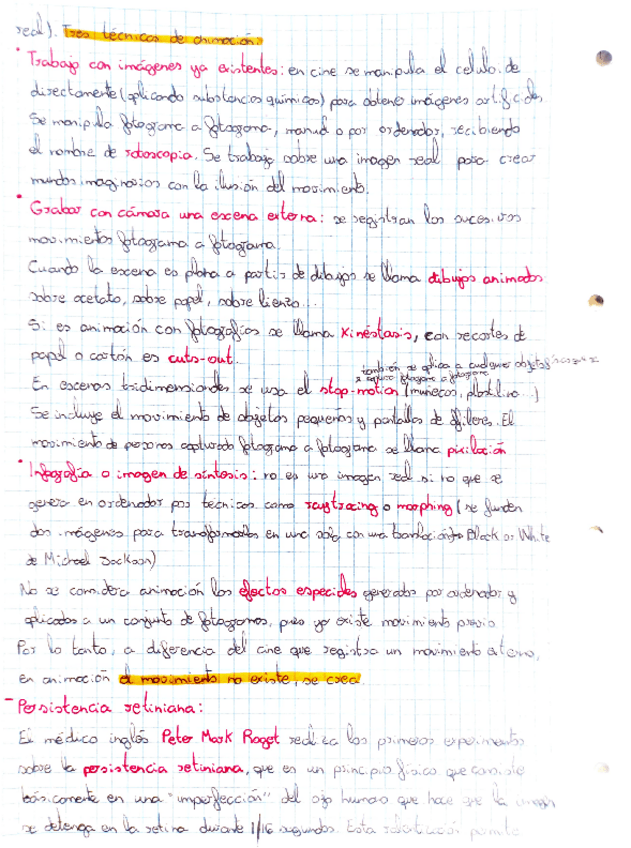 real). Tres técnicas de animación:
· Trabajo con imágenes ya existentes: en cine se manipula el celuloide
directamente (aplicando substancias químicas) para obtener imágenes artificiales
Se manipula fotograma a fotograma, manual o por ordenador, recibiendo
el nombre de rotoscopia. Se trabaja sobre una imagen real para crear
mundos imaginarios con la ilusión del movimiento.
· Grabar con cámara una escena externa: se registran los sucesivos
movimientos fotograma a fotograma.
Cuando la escena es plana a partir de dibujos se llama dibujos animados
sobre acetato, sobre papel, sobre lienzo...
Si es animación con fotografías se llama Kinéstasis, con recortes de
papel o cartón es cuts-out.
también se aplica a cualquier objeto físico que se
fotograma a fotograma
En escenas tridimensionales se usa el stop-motion (muñecos, plastilina...)
Se incluye el movimiento de objetos pequeños y pantallas de alfileres. El
movimiento de personas capturado fotograma a fotograma se llama pixilación
· Infografía o imagen de síntesis: no es una imagen real si no que se
genera en ordenador por técnicas como raytracing o morphing (se funden
dos imágenes para transformarlas en una sola con una Black or White
de Michael Jackson)
No se considera animación los efectos especiales generados por ordenador y
aplicados a un conjunto de fotogramas, pues ya existe movimiento previo
Por lo tanto, a diferencia del cine que registra un movimiento externo,
en animación el movimiento no existe, se crea
- Persistencia retiniana:
El médico inglés Peter Mark Roget realiza los primeros experimentos
sobre la persistencia retiniana, que es un principio físico que consiste
básicamente en una "imperfección" del ojo humano que hace que la imagen
se detenga en la retina durante 1/16 segundos. Esta permite